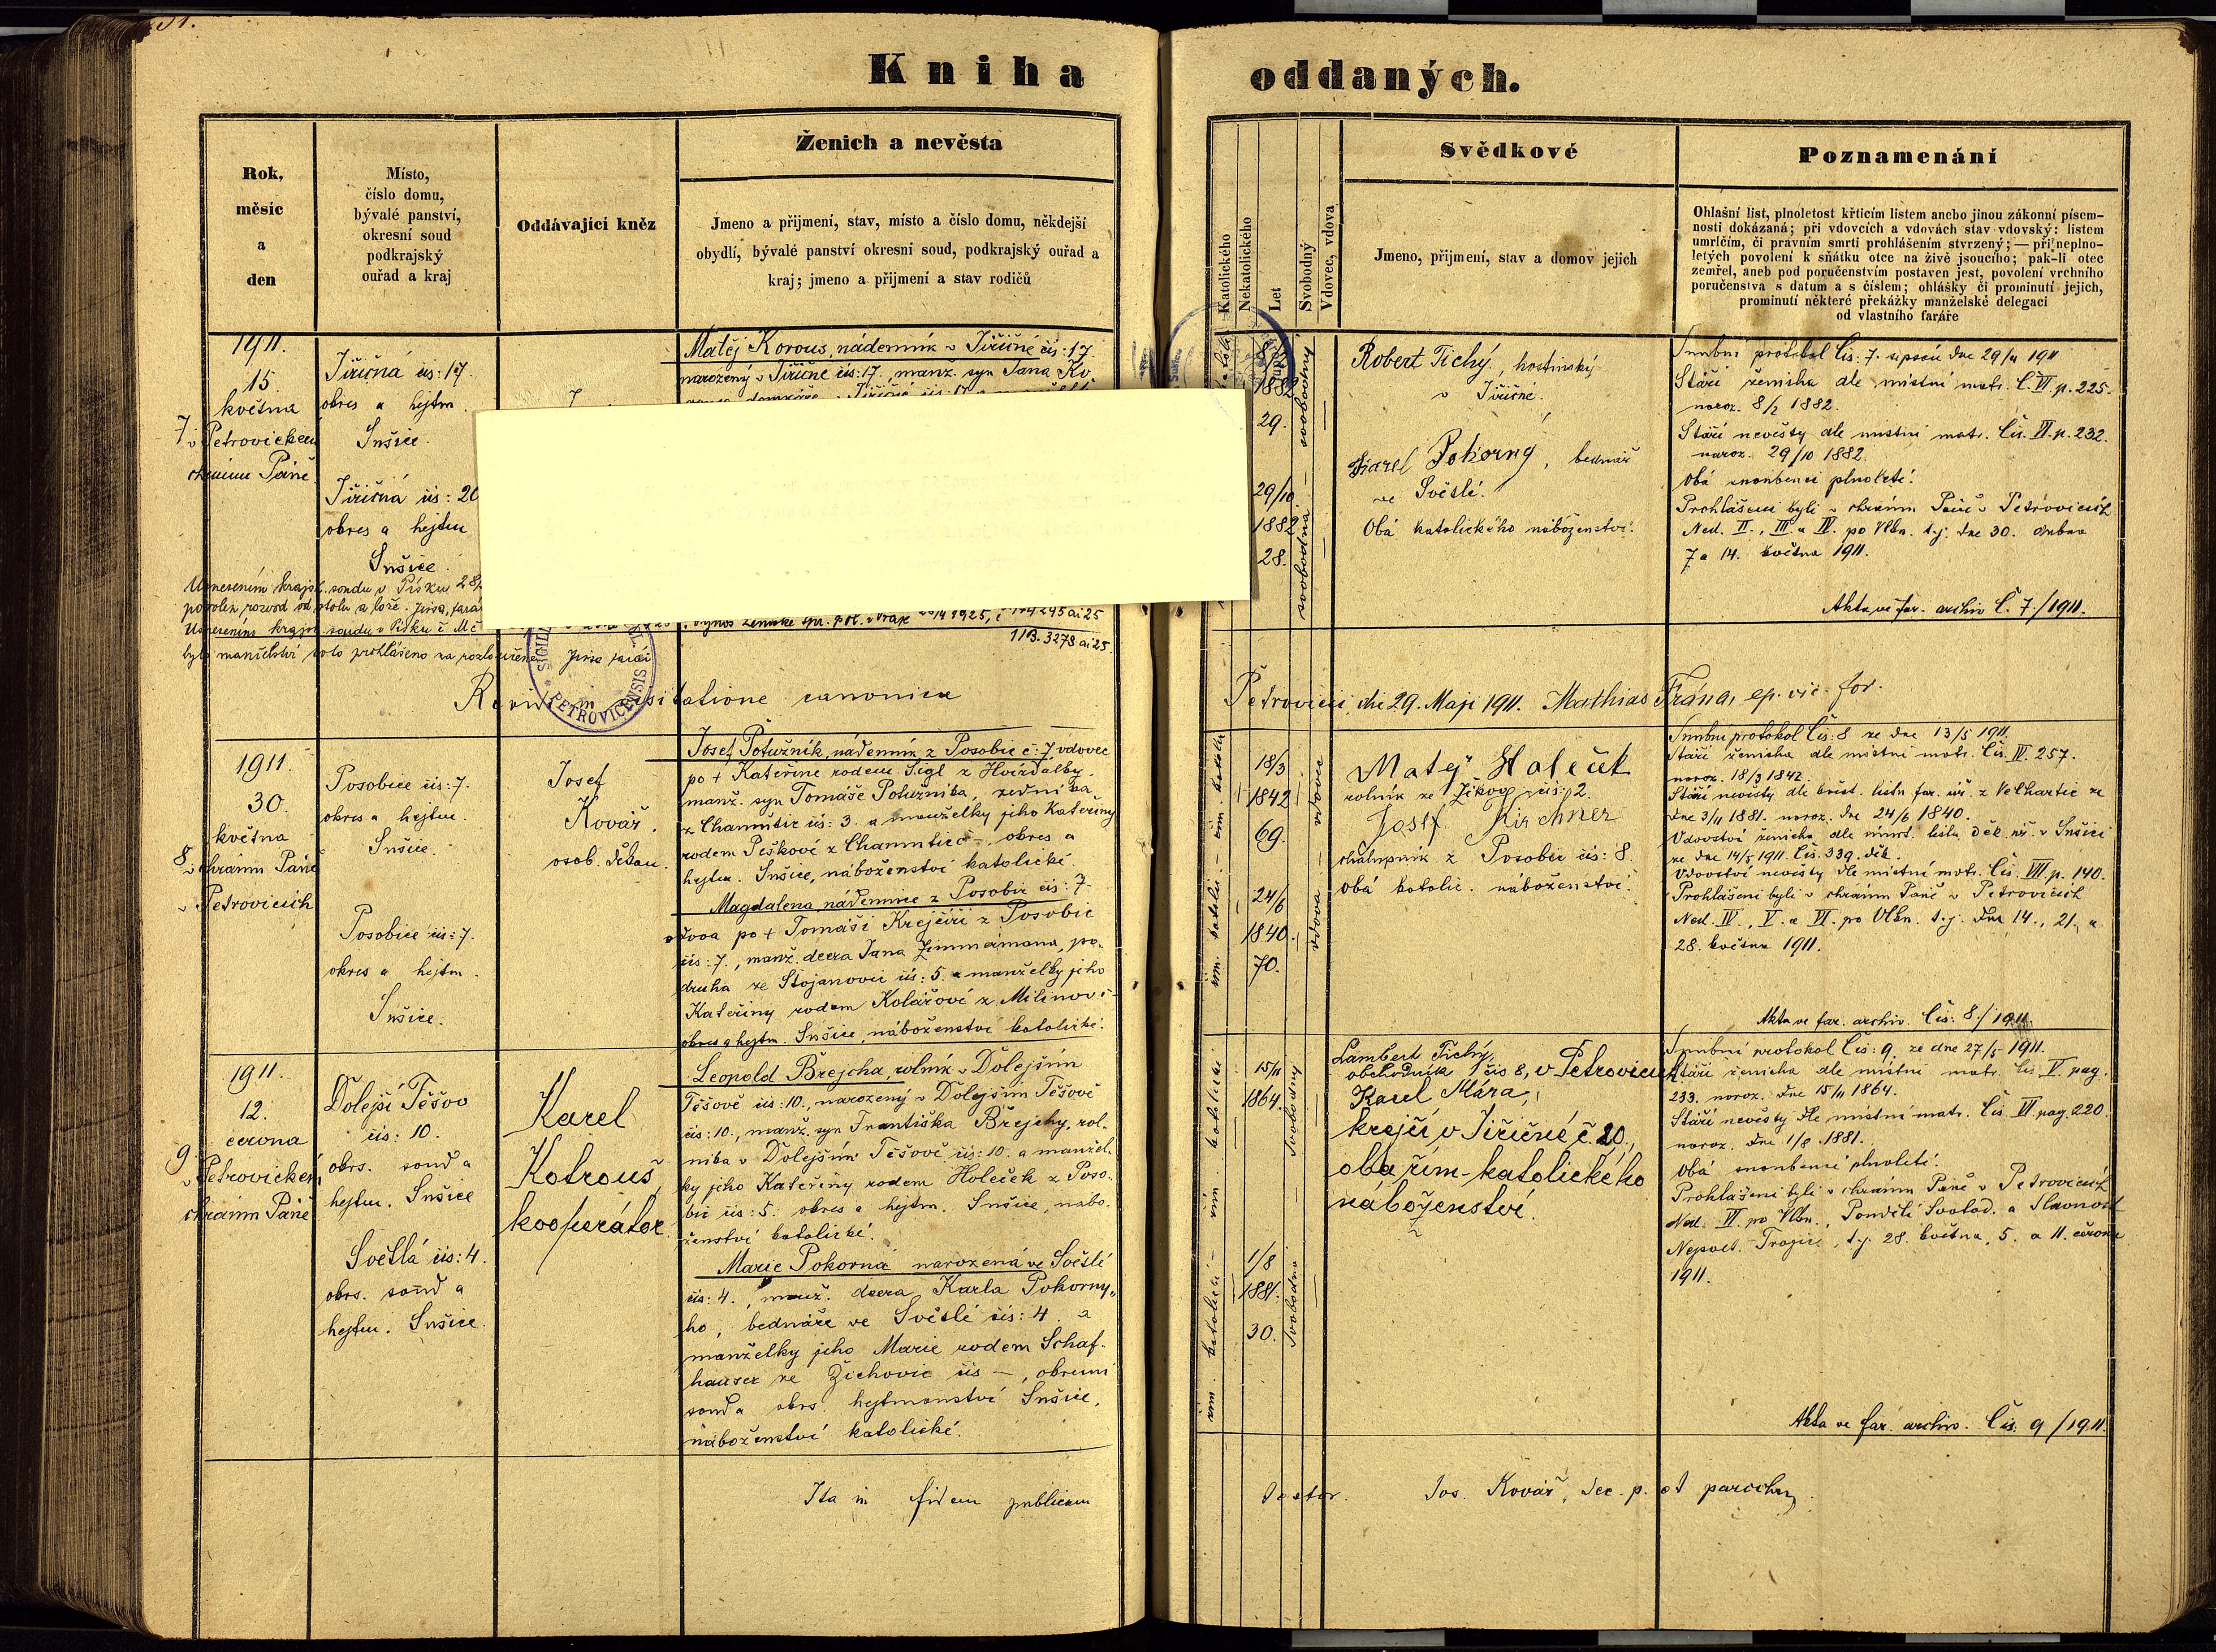 Kniha oddaných.
Rok,
měsíc
a
den
Místo,
číslo domu,
bývalé panství,
okresní soud
podkrajský
ouřad a kraj
Oddávající kněz
Ženich a nevěsta
Jmeno a přijmení, stav, místo a číslo domu, někdejší
obydlí, bývalé panství okresní soud, podkrajský ouřad a
kraj; jmeno a přijmení a stav rodičů
Katolického
Nekatolického
Let
Svobodný
Vdovec, vdova
Svědkové
Jmeno, přijmení, stav a domov jejich
Poznamenání
Ohlašní list, plnoletost křticím listem anebo jinou zákonní písem-
ností dokázaná; při vdovcích a vdovách stav vdovský: listem
umrlčím, či právním smrti prohlášením stvrzený; — při neplno-
letých povolení k sňátku otce na živě jsoucího; pak-li otec
zemřel, aneb pod poručenstvím postaven jest, povolení vrchního
poručenstva s datum a s číslem; ohlášky či prominutí jejich,
prominutí některé překážky manželské delegací
od vlastního faráře
1911.
15.
května
7
v Petrovickém
chrámu Páně
Jiřičná čís: 17
okres a hejtm.
Sušice.
Jiřičná čís: 20
okres a hejtm
Sušice.
Matěj Korous, nádenník v Jiřičné čís: 17.
narozený v Jiřičné čís: 17., manž. syn Jana Ko-
8/2
1882
29.
29/10
1882
28.
svobodný
svobodná
Robert Tichý, hostinský
v Jiřičné.
Karel Pokorný, bednář
ve Světlé.
Obá katolického náboženství.
Snubní protokol Čís: 7. sepsán dne 29/4 1911
Stáří ženicha dle místní matr. Č. VI. p. 225.
naroz. 8/2 1882.
Stáří nevěsty dle místní matr. Čís. VI. p. 232.
naroz. 29/10 1882.
Obá snoubenci plnoletí.
Prohlášeni byli v chrámu Páně v Petrovicích
Ned. II., III. a IV. po Vlkn. t. j. dne 30. dubna
7 a 14. května 1911.
Akta ve far. archiv Č. 7./1911.
Usnesením krajsk. soudu v Písku 28/
povolen rozvod od stolu a lože.
Usnesením krajsk. soudu v Písku č
bylo manželství toto prohlášeno za rozloučené.
113.3278 ai 25.
SIGIL
PETROVICENSIS
Revidi in visitatione canonica
Petrovicii, die 29. Maji 1911. Mathias Frána, ep. vic. for.
1911.
30.
května
8
v chrámu Páně
v Petrovicích
Posobice čís: 7.
okres a hejtm.
Sušice.
Posobice čís: 7.
okres a hejtm.
Sušice.
Josef
Kovář,
osob. děkan.
Josef Potužník, nádenník z Posobic č: 7 vdovec
po + Kateřině rodem Sigl z Hvízdalky.
manž. syn Tomáše Potužníka, zedníka
z Chamutic čís: 3. a manželky jeho Kateřiny
rodem Peškové z Chamutic č –, okres a
hejtm. Sušice, náboženství katolické.
Magdalena, nádennice z Posobic čís: 7
vdova po + Tomáši Krejčíři z Posobic
čís: 7., manž. dcera Jana Zimmermana, po-
druha ze Stojanovic čís: 5. a manželky jeho
Kateřiny rodem Kolářové z Milínov č –
okres a hejtm. Sušice, náboženství katolické.
18/3
1842
69.
24/6
1840
70.
vdovec
vdova
Matěj Holeček
rolník ze Žikov, čís: 2.
Josef Kirchner
chalupník z Posobic čís: 8.
obá katolic. náboženství.
Snubní protokol Čís: 8 ze dne 13/5 1911.
Stáří ženicha dle místní matr. Čís. IV. 257.
naroz. 18/3 1842.
Stáří nevěsty dle křest. listu far. úř. z Velhartic ze
dne 3/11 1881. naroz. dne 24/6 1840.
Vdovství ženicha dle úmrt. listu děk. úř. v Sušici
ze dne 14/5 1911. Čís. 339. děk.
Vdovství nevěsty dle místní matr. Čís. VII. p. 140.
Prohlášeni byli v chrámu Páně v Petrovicích
Ned. IV., V. a VI. po Vlkn. t. j. dne 14., 21., a
28. května 1911.
Akta ve far. archiv. Čís: 8./1911.
1911.
12.
června
9
v Petrovickém
chrámu Páně
Dolejší Těšov
čís: 10.
okrs. soud a
hejtm. Sušice
Světlá čís: 4.
okrs. soud a
hejtm. Sušice.
Karel
Kotrouš,
kooperátor.
Leopold Brejcha, rolník v Dolejším
Těšově čís: 10., narozený v Dolejším Těšově
čís: 10., manž. syn Františka Brejchy, rol-
níka v Dolejším Těšově čís: 10. a manžel-
ky jeho Kateřiny rodem Holeček z Poso-
bic čís: 5. okres a hejtm. Sušice, nábo-
ženství katolické.
Marie Pokorná narozená ve Světlé
čís: 4., manž. dcera Karla Pokorny-
ho, bednáře ve Světlé čís: 4. a
manželky jeho Marie rodem Schaf-
hauser ze Žichovic čís –, okresní
soud a okrs. hejtmanství Sušice,
náboženství katolické.
15/11
1864.
1/8
1881.
30.
svobodný
svobodná
Lambert Tichý,
obchodník čís 8, v Petrovicích
Karel Mára,
krejčí v Jiřičné č. 20.,
oba řím-katolického
náboženství.
Snubní protokol Čís: 9. ze dne 27/5 1911.
Stáří ženicha dle místní matr. Čís V. pag.
233. naroz. dne 15/11 1864.
Stáří nevěsty dle místní matr. Čís. VI. pag. 220.
naroz. dne 1/8 1881.
Obá snoubenci plnoletí.
Prohlášeni byli v chrámu Páně v Petrovicích
Ned. VI. po Vlkn., Pondělí Svatod. a Slavnost
Nejsvět. Trojice, t. j. 28. května, 5. a 11. června
1911.
Akta ve far. archiv. Čís. 9/1911.
Ita in fidem publicam
testor. Jos. Kovář, dec. p. et parochus.